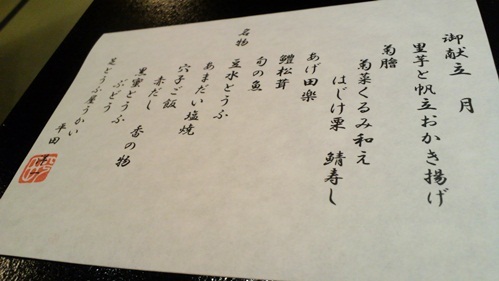 御献立 月
里芋と帆立おかき揚げ
菊膾
菊菜くるみ和え
はじけ栗 鯖寿し
あげ田楽
鱧松茸
旬の魚
名物 豆水とうふ
あまだい塩焼
穴子ご飯
赤だし 香の物
黒蜜とうふ
ぶどう
とうふ屋うかい
平田